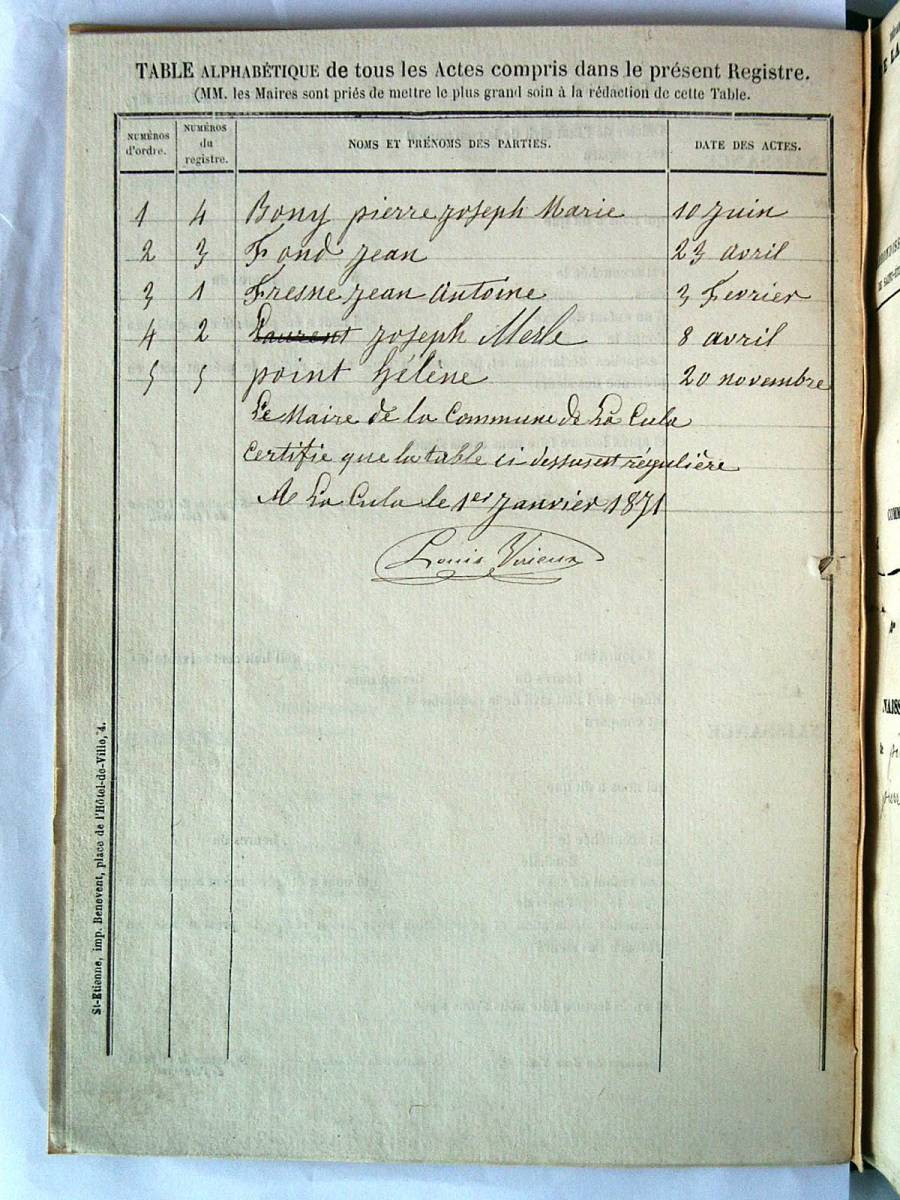 TABLE ALPHABÉTIQUE de tous les Actes compris dans le présent Registre.
(MM. les Maires sont priés de mettre le plus grand soin à la rédaction de cette Table.
NUMÉROS d'ordre. NUMÉROS du registre. NOMS ET PRÉNOMS DES PARTIES. DATE DES ACTES.
1 4 Bony pierre joseph Marie 10 juin
2 3 Fond jean 23 avril
3 1 Fresne jean Antoine 3 Fevrier
4 2 Laurent joseph Merle 8 avril
5 5 point hélène 20 novembre
Le Maire de la Commune de La Cula
certifie que la table ci dessus est régulière
A La Cula le 1er janvier 1871
Louis Virieux
St-Etienne, imp. Benevent, place de l'Hôtel-de-Ville, 4.